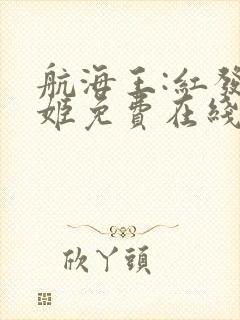 航海王:紅發
姬免費在綫
欣丫頭